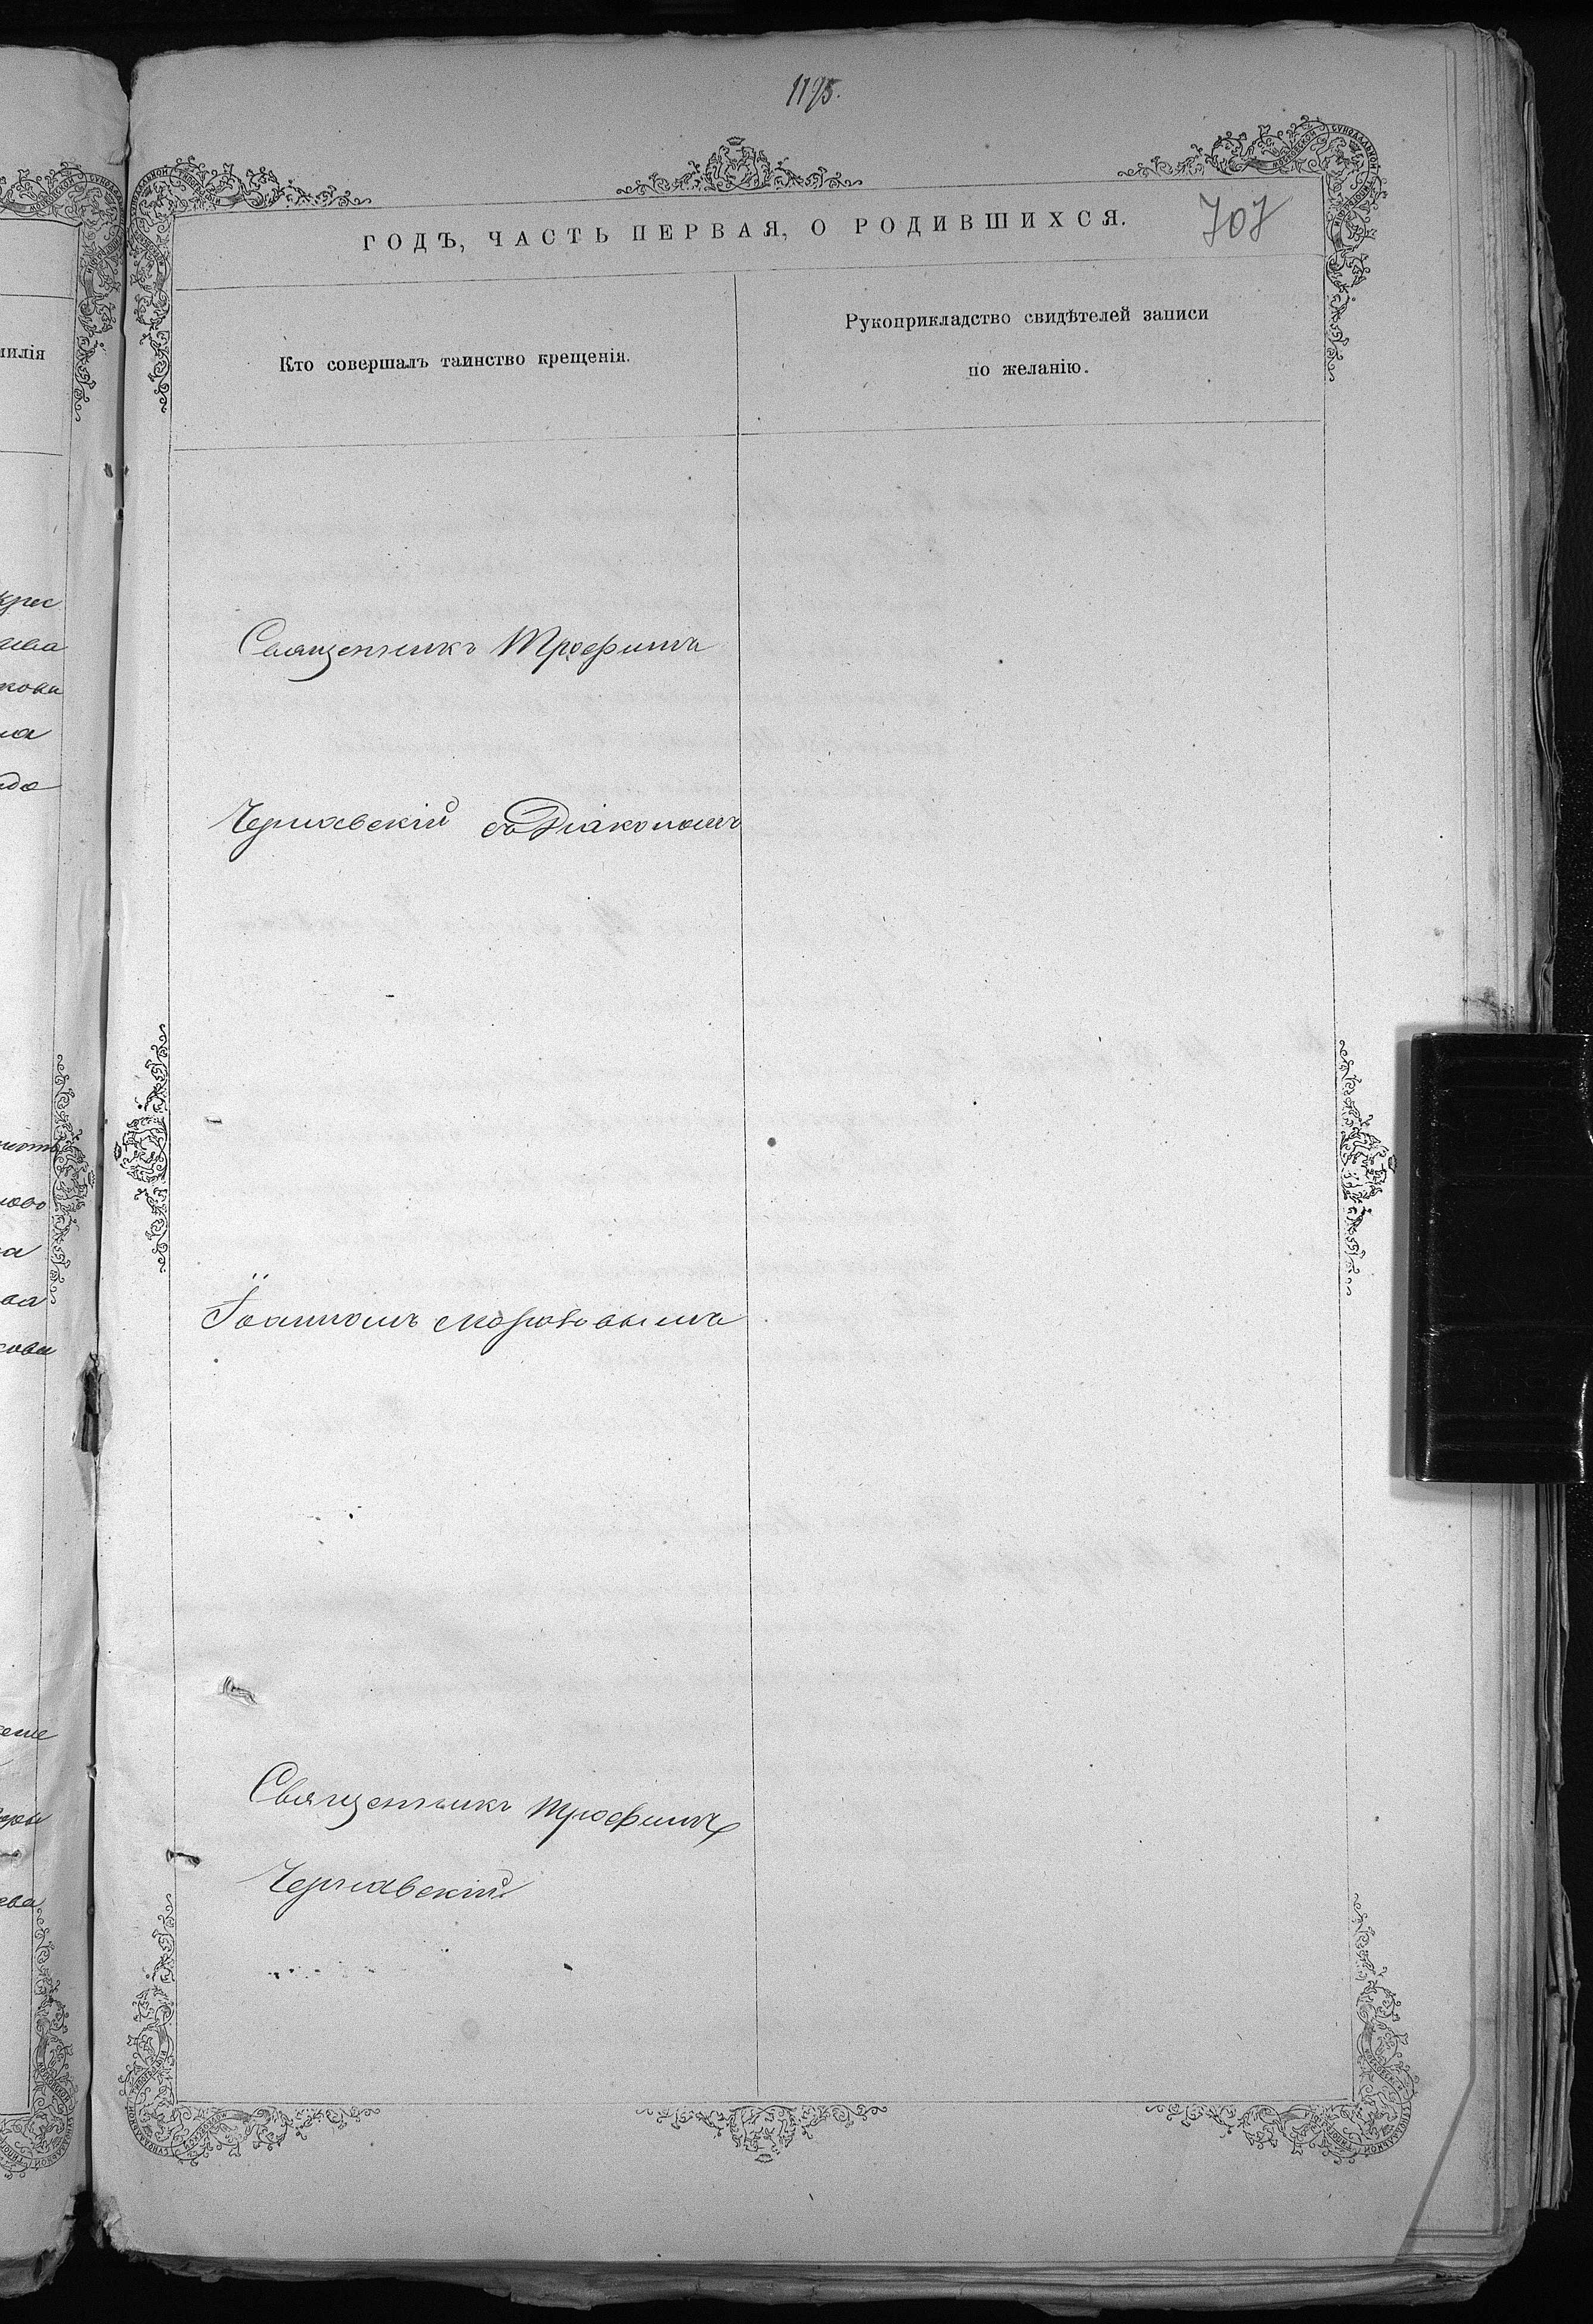 1175.
707
ГОДЪ, ЧАСТЬ ПЕРВАЯ, О РОДИВШИХСЯ.
Кто совершалъ таинство крещенія.
Рукоприкладство свидѣтелей записи
по желанію.
Священникъ Трофимъ
Чернавскій съ Діакономъ
Іоанномъ
Священникъ Трофимъ
Чернавскій